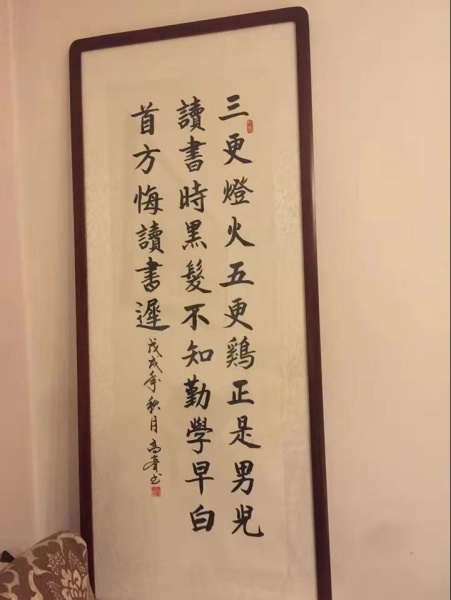 三更燈火五更鷄正是男兒
讀書時黑髮不知勤學早白
首方悔讀書遲
戊戌年秋月高峯书